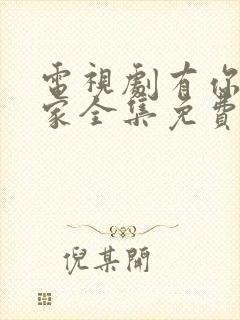 電視劇有你
家全集免費
倪某開